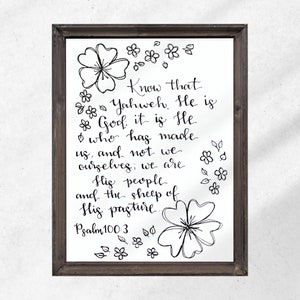 Know that
Yahweh, He is
God; it is He
who has made
us, and not we
ourselves; we are
His people
and the sheep of
His pasture
Psalm 100:3